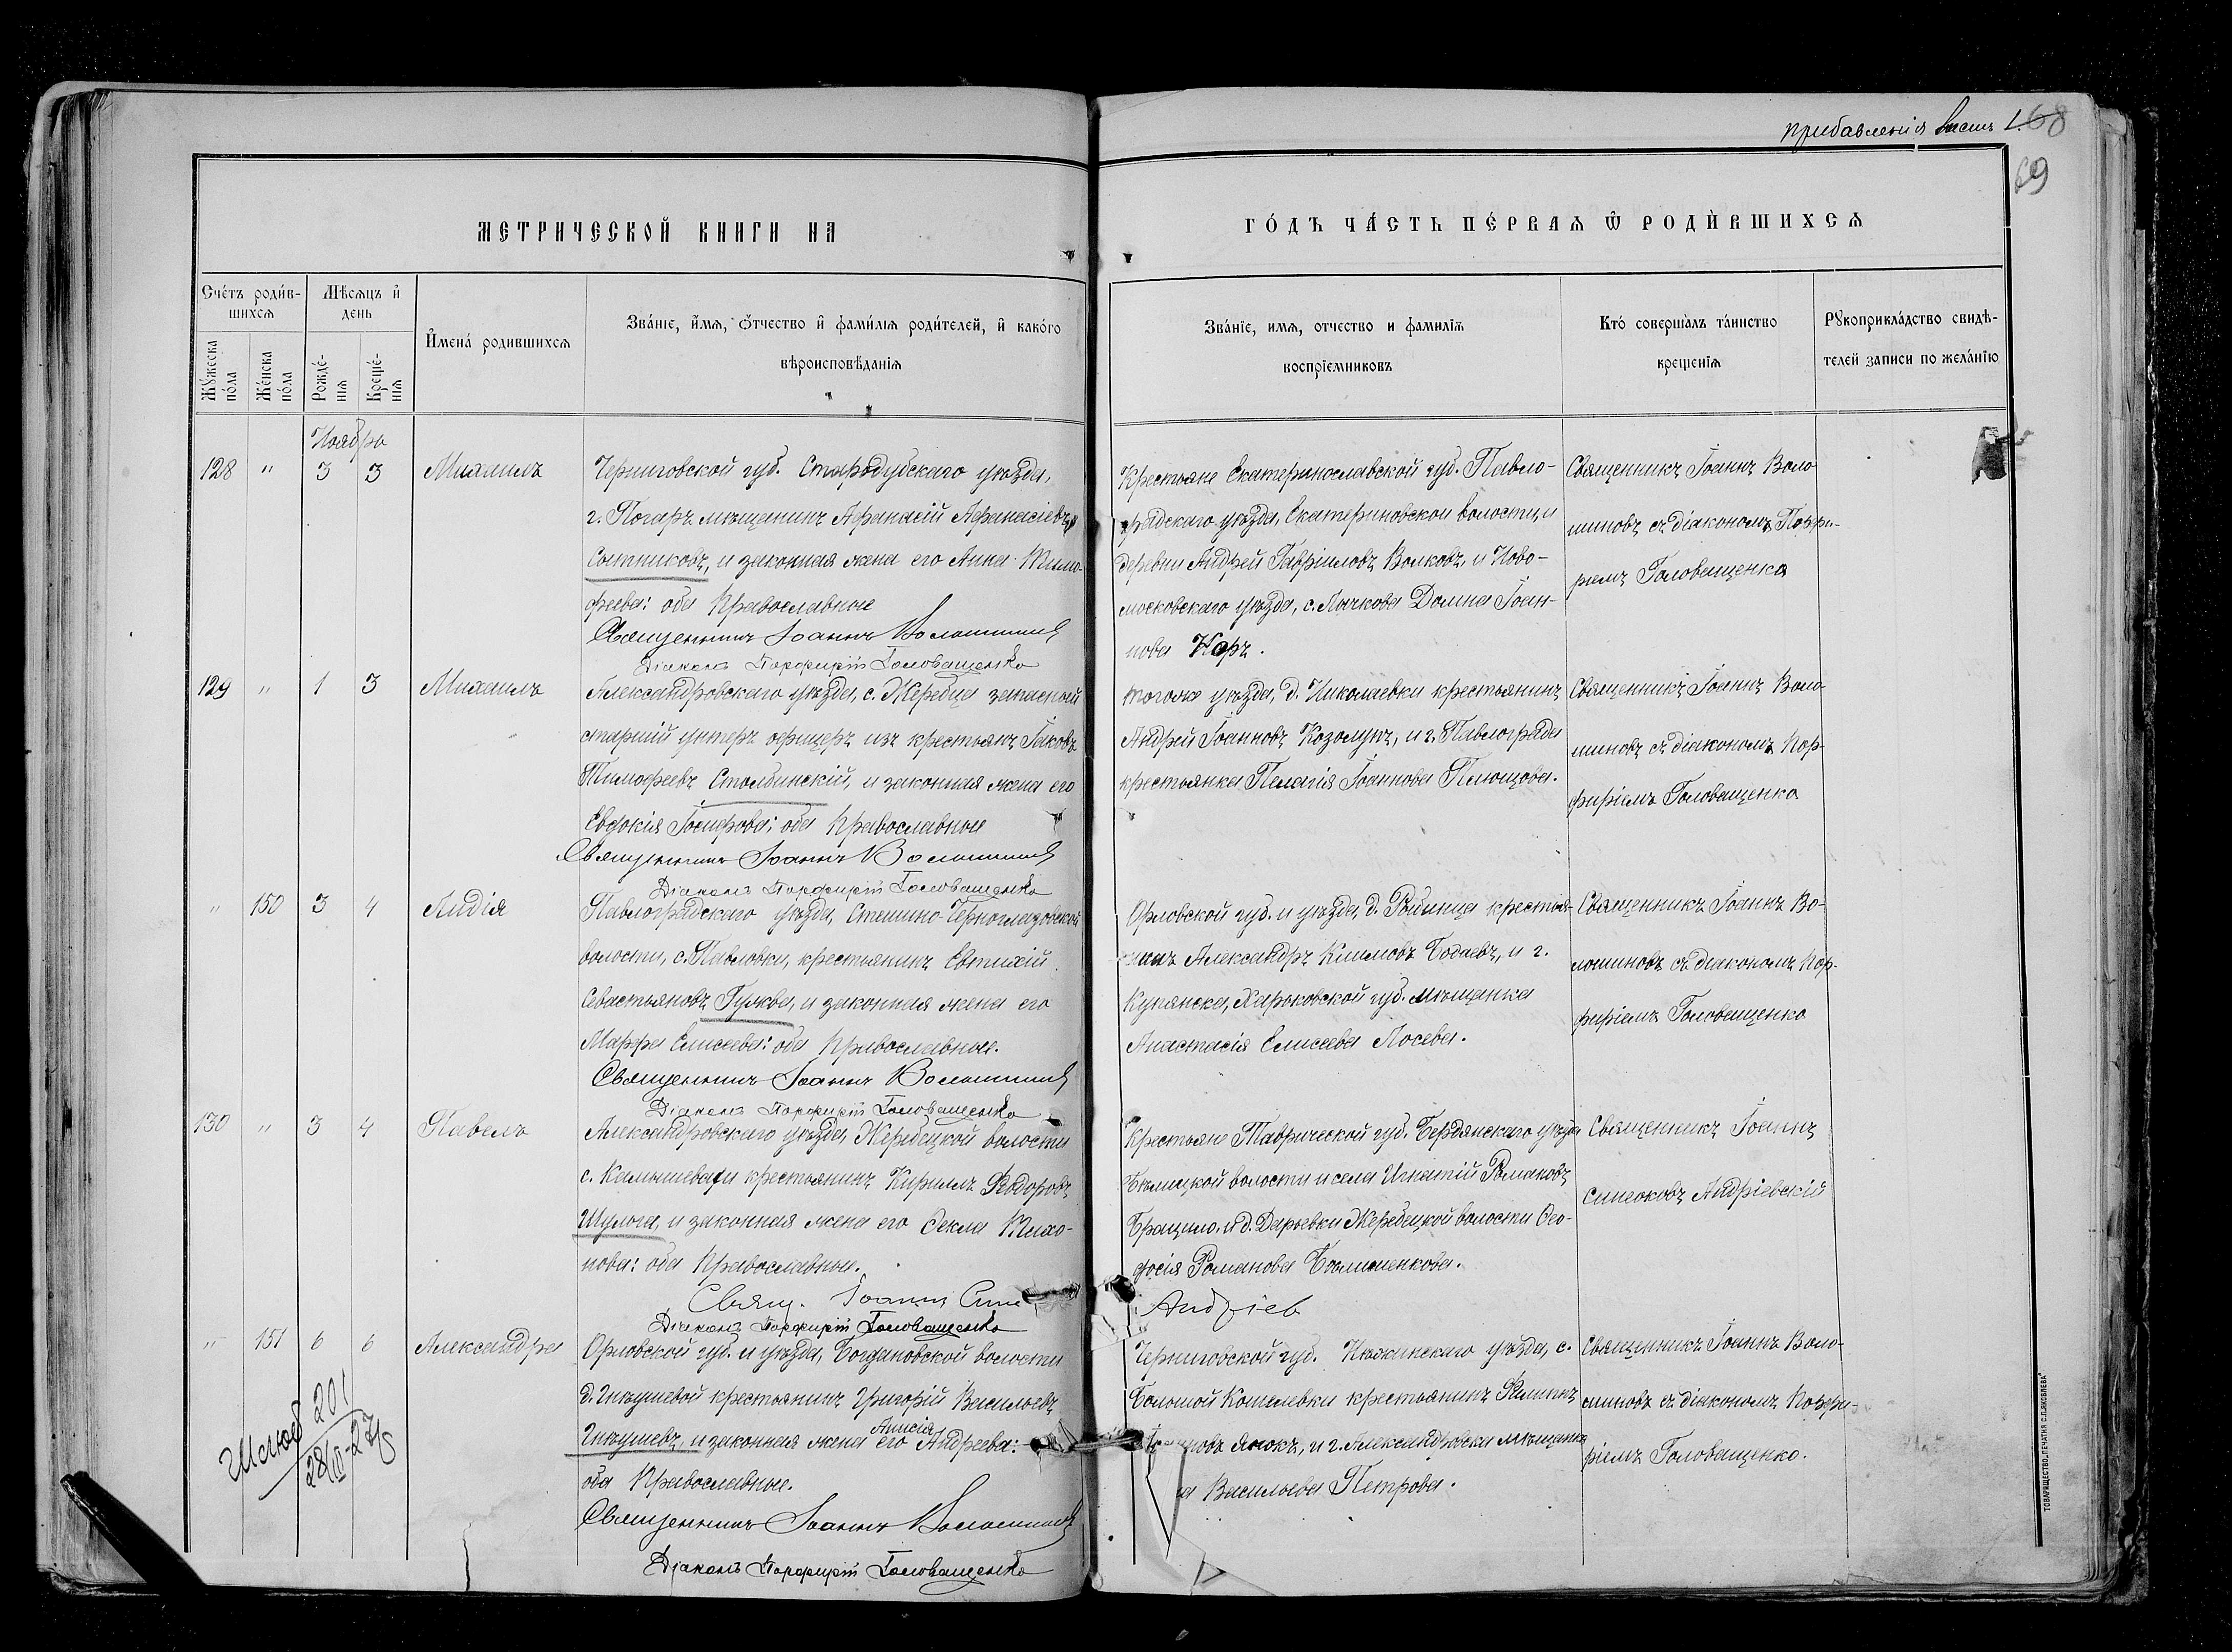 прибавленія 68
69
МЕТРИЧЕСКОЙ КНИГИ НА
ГОДЪ ЧАСТЬ ПЕРВАЯ Ѿ РОДИВШИХСЯ
Счетъ родив-
шихся
Мѣсяцъ и
день
Мужеска
пола
Женска
пола
Рожде-
нія
Креще-
нія
Имена родившихся
Званіе, имя, отчество и фамилія родителей, и какого
вѣроисповѣданія
Званіе, имя, отчество и фамилія
воспріемниковъ
Кто совершалъ таинство
крещенія
Рукоприкладство свидѣ-
телей записи по желанію
Ноября
128 " 3 3 Михаилъ
Черниговской губ. Стародубскаго уѣзда,
г. Погаръ мѣщанинъ Афанасій Афанасіевъ
Сотниковъ, и законная жена его Анна Тимо-
феева: оба Православные
Священникъ Іоаннъ Волошиновъ
Діаконъ Порфирій Головащенко
Крестьяне Екатеринославской губ. Павло-
градскаго уѣзда, Екатериновской волости, и
деревни Андрей Гавріиловъ Волковъ, и Ново-
московскаго уѣзда, с. Домна Іоан-
нова Корж.
Священникъ Іоаннъ Воло-
шиновъ съ діакономъ Порфи-
ріемъ Головащенко
129 " 1 3 Михаилъ
Александровскаго уѣзда, с. Жеребца запасный
старшій унтеръ офицеръ изъ крестьянъ Іаковъ
Тимофеевъ Столбинскій, и законная жена его
Евдокія Іосифова: оба Православные
Священникъ Іоаннъ Волошиновъ
Діаконъ Порфирій Головащенко
тогоже уѣзда, д. Николаевки крестьянинъ
Андрей Іоанновъ Козолупъ, и г. Павлограда
крестьянка Пелагія Іоаннова Плющова.
Священникъ Іоаннъ Воло-
шиновъ съ діакономъ Пор-
фиріемъ Головащенко
" 150 3 4 Лидія
Павлоградскаго уѣзда, Степино-Черноглазовской
волости, с. Павловки, крестьянинъ Евтихій
Севастьяновъ Гужва, и законная жена его
Марфа Елисеева: оба Православные.
Священникъ Іоаннъ Волошиновъ
Діаконъ Порфирій Головащенко
Орловской губ. и уѣзда, д. крестья-
нинъ Александръ Климовъ Бодаевъ, и г.
Купянска, Харьковской губ. мѣщанка
Анастасія Елисеева Лосева.
Священникъ Іоаннъ Во-
лошиновъ съ діакономъ Пор-
фиріемъ Головащенко
130 " 3 4 Павелъ
Александровскаго уѣзда, Жеребецкой волости
с. Камышевахи крестьянинъ Кириллъ Ѳеодоровъ
Шулога, и законная жена его Ѳекла Тихо-
нова: оба Православные.
Свящ. Іоаннъ Сине Андріев
Діаконъ Порфирій Головащенко
Крестьяне Таврической губ. Бердянскаго уѣзда
волости и села Игнатій Романовъ
Брацило, и д. Дарьевки Жеребецкой волости Ѳео-
досія Романова
Священникъ Іоаннъ
Синеоковъ Андріевскій
" 151 6 6 Александра
Орловской губ. и уѣзда, Богдановской волости
д. Гнѣушевой крестьянинъ Григорій Васильевъ
Анисія
Гнѣушевъ, и законная жена его Андреева:
оба Православные.
Священникъ Іоаннъ Волошиновъ
Діаконъ Порфирій Головащенко
Черниговской губ. Нѣжинскаго уѣзда, с.
Большой Кошелевки крестьянинъ Филиппъ
и г. Александровска мѣщанка
Васильева Петрова.
Священникъ Іоаннъ Воло-
шиновъ съ діакономъ Порфи-
ріемъ Головащенко.
201
ТОВАРИЩЕСТВО „ПЕЧАТНЯ С.П. ЯКОВЛЕВА"